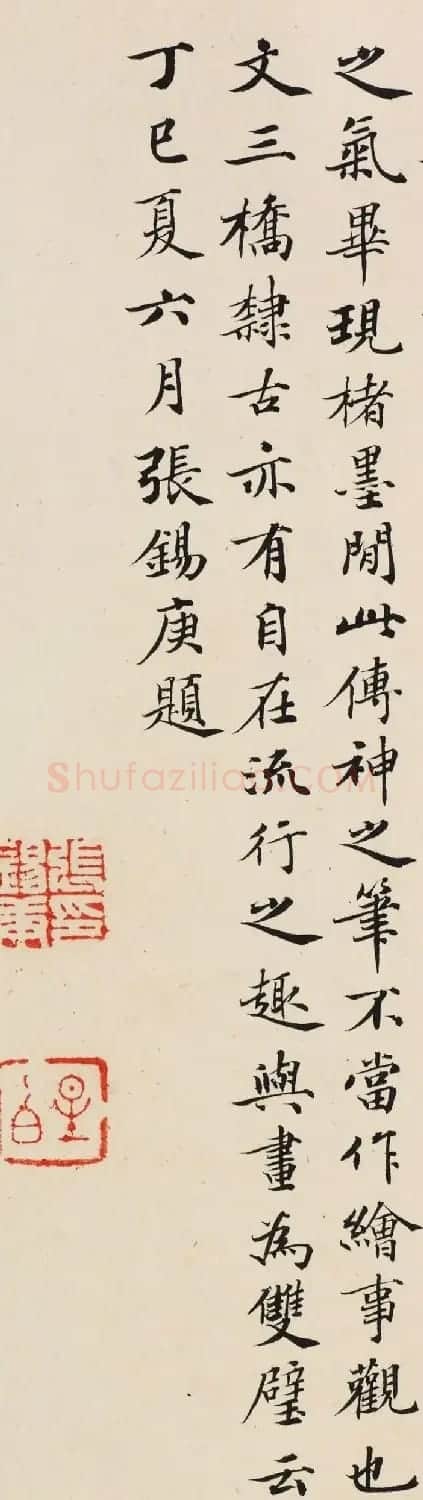 之氣畢現楮墨閒此傳神之筆不當作繪事觀也
文三橋隸古亦有自在流行之趣與畫為雙璧云
丁巳夏六月張錫庚題
Shufaziliao.COM
張錫庚印
星白